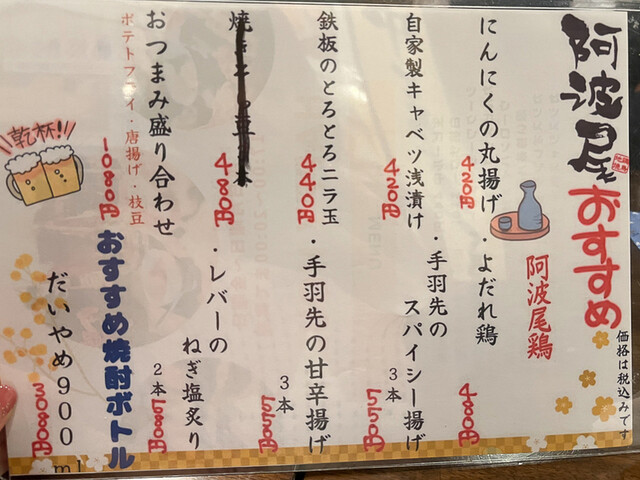 阿波尾
おすすめ
価格は税込みです
阿波尾鶏
にんにくの丸揚げ
420円
・よだれ鶏
480円
自家製キャベツ浅漬け
420円
・手羽先の
スパイシー揚げ
3本
550円
鉄板のとろとろニラ玉
440円
・手羽先の甘辛揚げ
3本
550円
480円
・レバーの
ねぎ塩炙り
2本
680円
おつまみ盛り合わせ
ポテトフライ・唐揚げ・枝豆
1080円
おすすめ焼酎ボトル
だいやめ900ml
3080円
乾杯!!